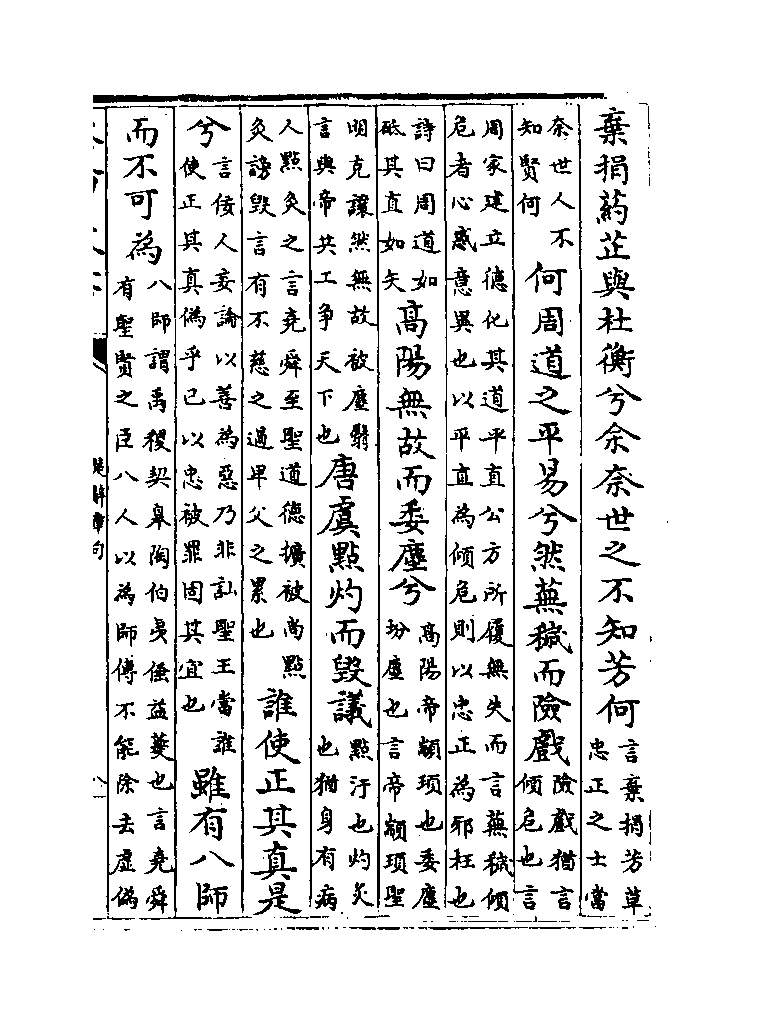 棄捐葯芷與杜衡兮余奈世之不知芳何言棄捐芳草忠正之士當
奈世人不知賢何何周道之平易兮然蕪穢而險戲險戲猶言傾危也言
周家建立德化其道平直公方所履無失而言蕪穢傾危者心惑意異也以平直為傾危則以忠正為邪枉也
詩曰周道如砥其直如矢高陽無故而委塵兮高陽帝顓頊也委塵坋塵也言帝顓頊聖
明克讓然無故被塵翳言與帝共工争天下也唐虞點灼而毁議點汙也灼灸也猶身有病
人點灸之言堯舜至聖道德擴被尚點灸謗毁言有不慈之過卑父之累也誰使正其真是
兮言佞人妄論以善為惡乃非訕聖王當誰使正其真偽乎已以忠被罪固其宜也雖有八師
而不可為八師謂禹稷契臯陶伯夷倕益夔也言堯舜有聖賢之臣八人以為師傅不能除去虛偽
楚辭章句